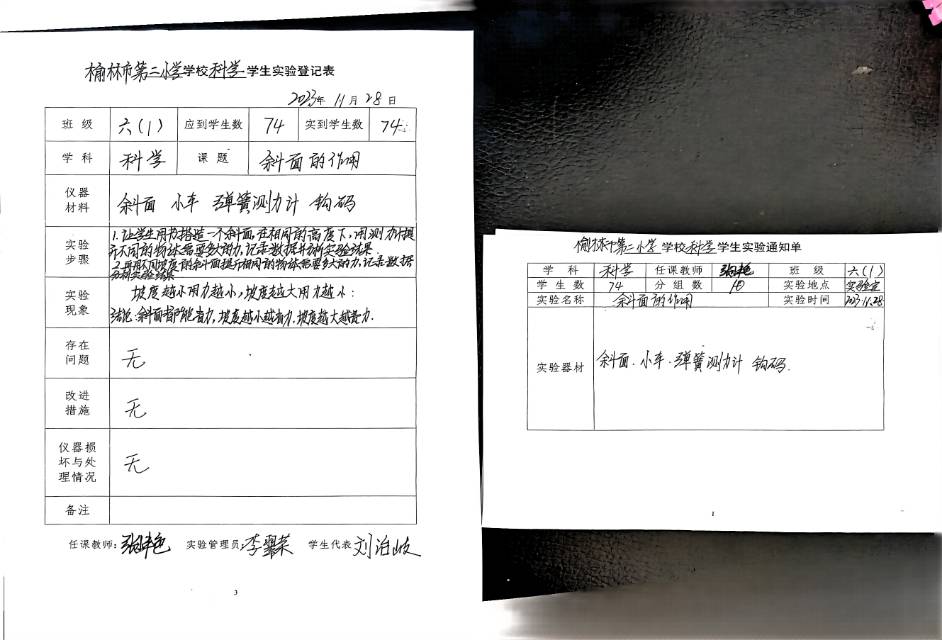 榆林市第二小学学校科学学生实验登记表
2023年 11月 28日
班级 六(1) 应到学生数 74 实到学生数 74
学科 科学 课题 斜面的作用
仪器材料 斜面 小车 弹簧测力计 钩码
实验步骤 1.让学生用板搭造一个斜面,在相同的高度下,用测力计提
升不同的物体需要多大的力,记录数据并分析实验结果
2.再用不同坡度的斜面提升相同的物体需要多大的力,记录数据
分析实验结果
实验现象 坡度越小用力越小,坡度越大用力越小:
结论:斜面都能省力,坡度越小越省力,坡度越大越费力.
存在问题 无
改进措施 无
仪器损坏与处理情况 无
备注
任课教师: 实验管理员: 学生代表 刘
3
榆林市第二小学 学校科学学生实验通知单
学科 科学 任课教师 班级 六(1)
学生数 74 分组数 10 实验地点 实验室
实验名称 斜面的作用 实验时间 2023.11.28
实验器材 斜面.小车.弹簧测力计 钩码.
1